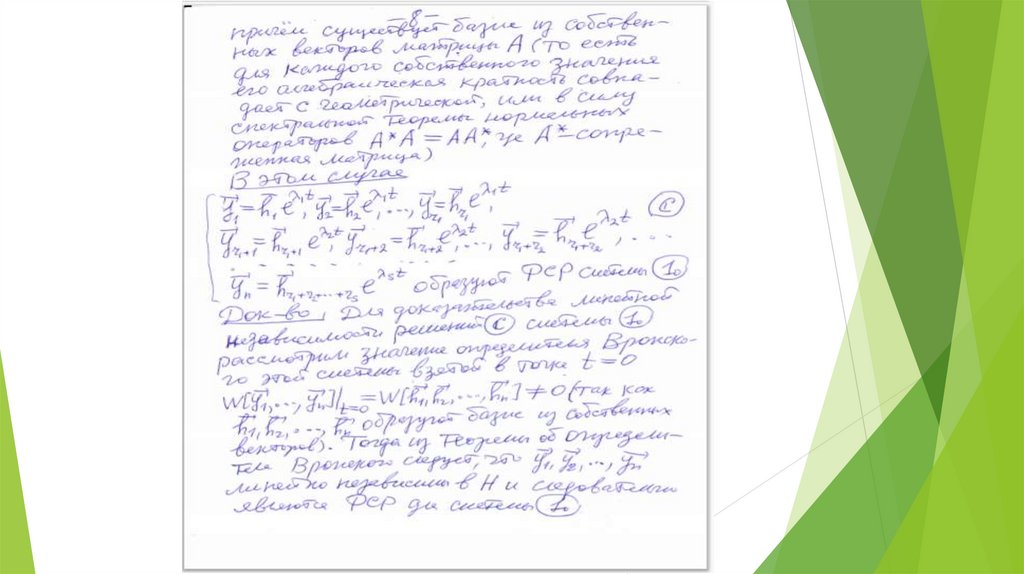 –8–
причём существует базис из собствен-
ных векторов матрицы A (то есть
для каждого собственного значения
его алгебраическая кратность совпа-
дает с геометрической, или в силу
спектральной теоремы нормальных
операторов A*A = AA*, где A* – сопря-
женная матрица)
В этом случае
y⃗₁ = h⃗₁e^{λ₁t}, y⃗₂ = h⃗₂e^{λ₁t}, ..., y⃗_{r₁} = h⃗_{r₁}e^{λ₁t}, (C)
y⃗_{r₁+1} = h⃗_{r₁+1}e^{λ₂t}, y⃗_{r₁+2} = h⃗_{r₁+2}e^{λ₂t}, ..., y⃗_{r₁+r₂} = h⃗_{r₁+r₂}e^{λ₂t}, ...
y⃗ₙ = h⃗_{r₁+r₂...+r_s}e^{λ_s t} образуют ФСР системы (1₀)
Док-во, Для доказательства линейной
независимости решений (C) системы (1₀)
рассмотрим значение определителя Вронско-
го этой системы взятой в точке t = 0
W[y⃗₁, ..., y⃗ₙ]|_{t=0} = W[h⃗₁, h⃗₂, ..., h⃗ₙ] ≠ 0 (так как
h⃗₁, h⃗₂, ..., h⃗ₙ образуют базис из собственных
векторов). Тогда из Теоремы об определи-
теле Вронского следует, что y⃗₁, y⃗₂, ..., y⃗ₙ
линейно независимы в H и следовательно
являются ФСР для системы (1₀)